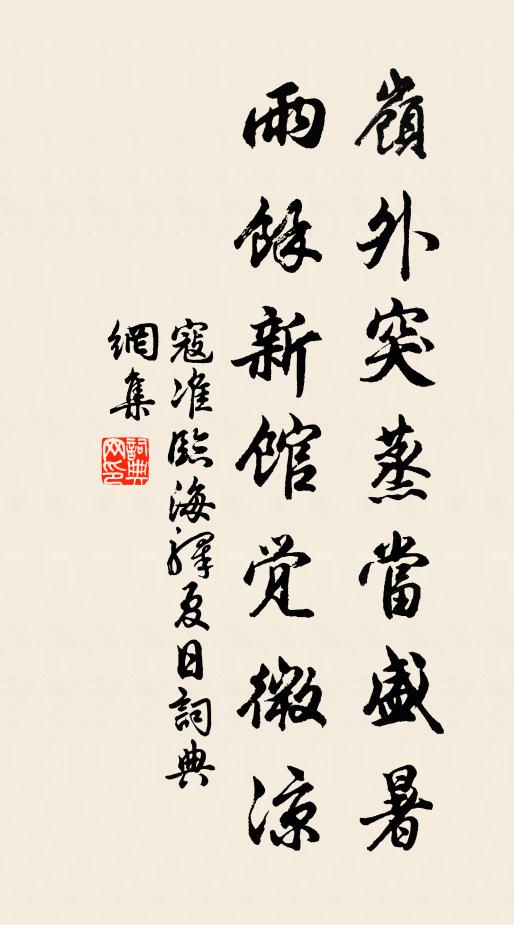 嶺外突蒸當盛暑
雨餘新館觉微凉
寇准臨海驛夏日詞典
網集
詞典
网印